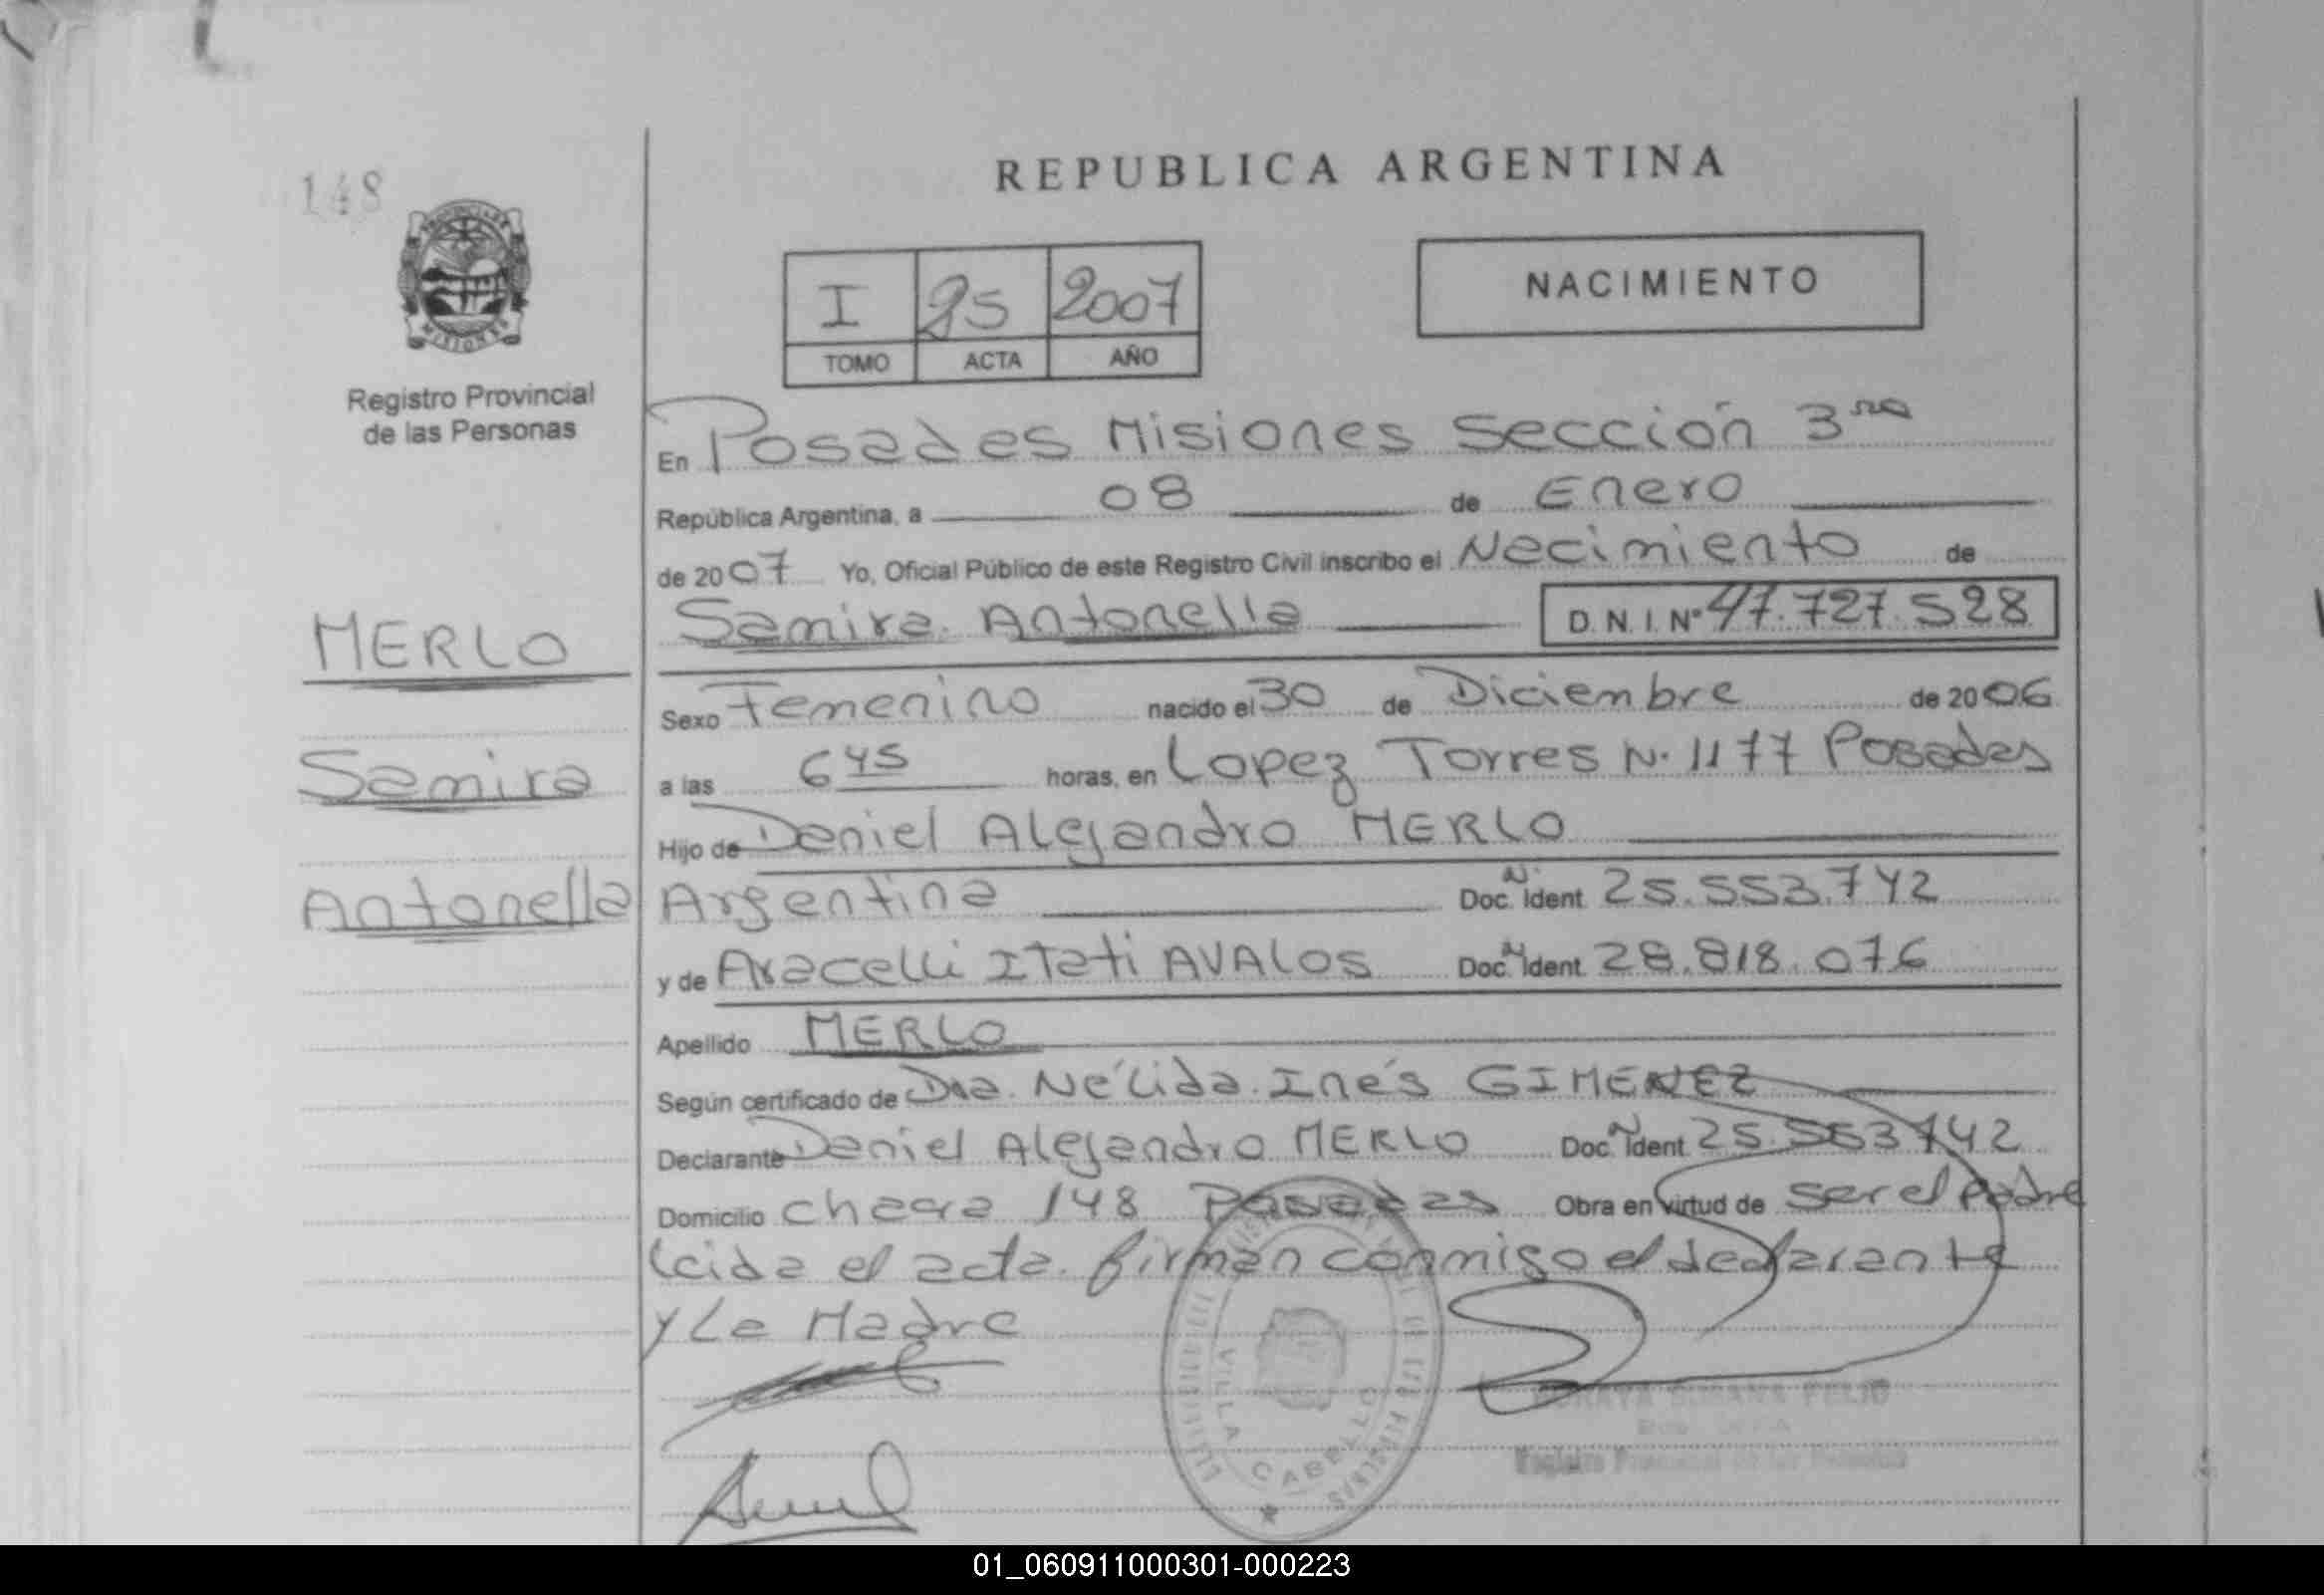 148
REPUBLICA ARGENTINA
I 25 2007
TOMO ACTA AÑO
NACIMIENTO
MISIONES
Registro Provincial
de las Personas
En Posadas Misiones Sección 3ra
República Argentina, a 08 de Enero
de 2007 Yo, Oficial Público de este Registro Civil inscribo el Nacimiento de
Samira Antonella D.N.I. Nº 47.727.528
MERLO
Samira
Antonella
Sexo Femenino nacido el 30 de Diciembre de 2006
a las 6 45 horas, en Lopez Torres N. 1177 Posadas
Hijo de Daniel Alejandro MERLO
Argentina Doc. N. Ident. 25.553.742
y de Aracelli Itati AVALOS Doc. N Ident. 28.818.076
Apellido MERLO
Según certificado de Dra. Nélida Inés GIMENEZ
Declarante Daniel Alejandro MERLO Doc. N Ident. 25.553742
Domicilio chacra 148 Posadas Obra en virtud de ser el padre
leida el acta firman conmigo el declarante
y La Madre
VILLA CABELLO
SUSANA
Registro Provincial de las Personas
01_060911000301-000223